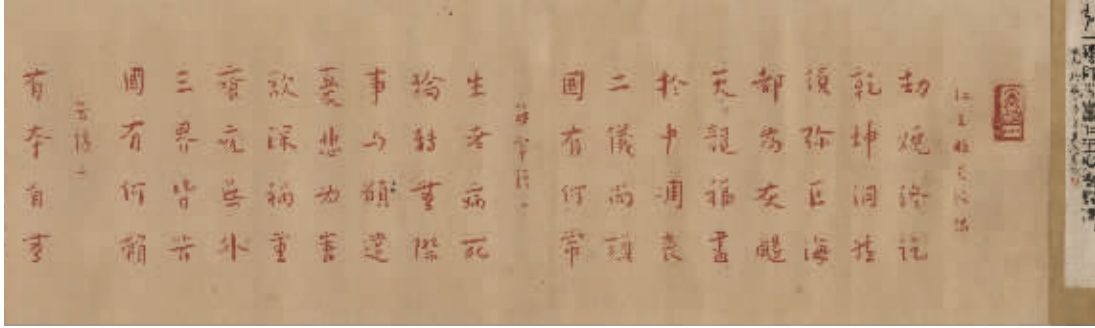 仁王般若經偈
劫燒終訖
乾坤洞燃
須弥巨海
都為灰颺
天龍福盡
於中凋喪
二儀尚殞
國有何常
生老病死
輪轉無際
事与願違
憂悲为害
欲深禍重
瘡疣無外
三界皆苦
國有何賴
有本自無